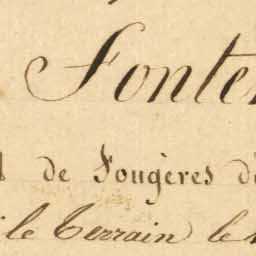 Fonte
de Fougères d
le Terrain le